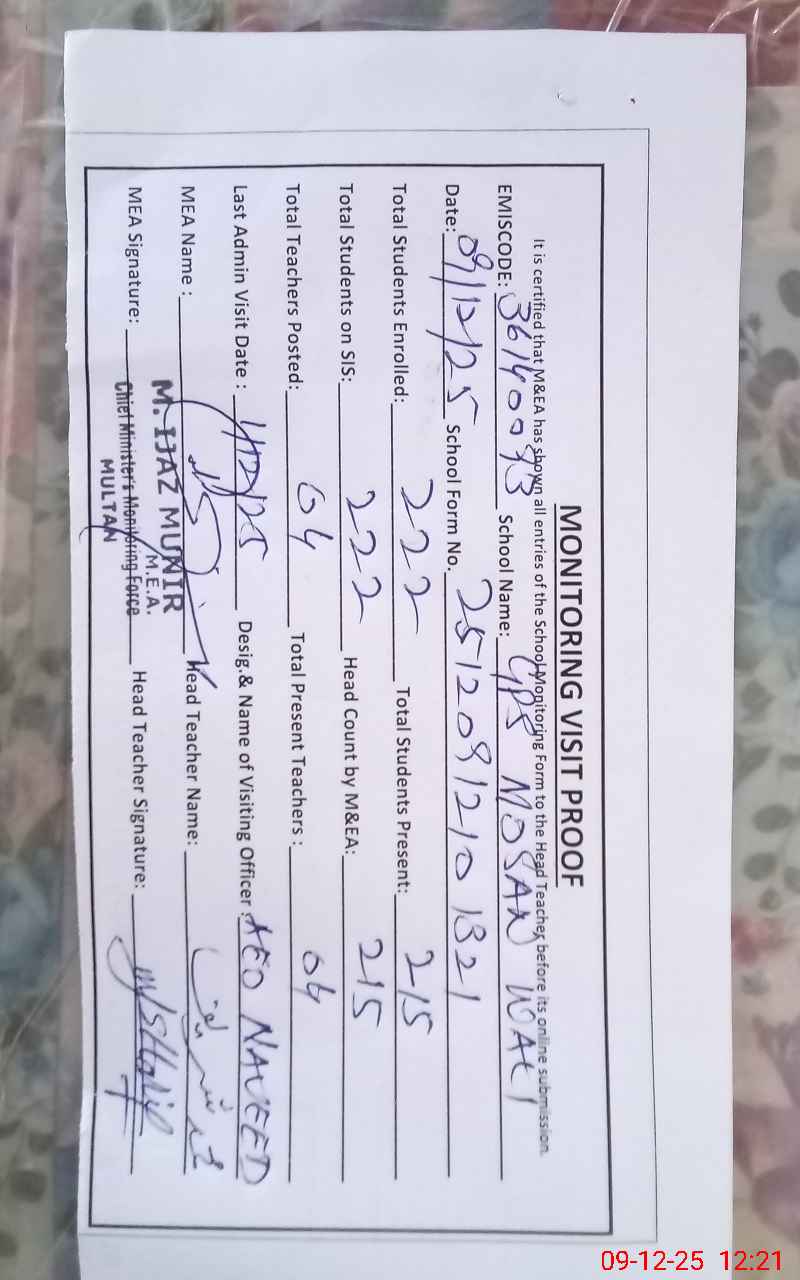 MONITORING VISIT PROOF
It is certified that M&EA has shown all entries of the School Monitoring Form to the Head Teacher before its online submission.
EMISCODE: 36140093 School Name: GPS MOSAN WALI
Date: 09/12/25 School Form No. 25120912101321
Total Students Enrolled: 222 Total Students Present: 215
Total Students on SIS: 222 Head Count by M&EA: 215
Total Teachers Posted: 04 Total Present Teachers : 04
Last Admin Visit Date : 4/12/25 Desig.& Name of Visiting Officer : AEO NAVEED
MEA Name : M. IJAZ MUNIR Head Teacher Name: محمد شریف
M.E.A.
MEA Signature: Chief Minister's Monitoring Force Head Teacher Signature: M/Sharif
MULTAN
09-12-25 12:21